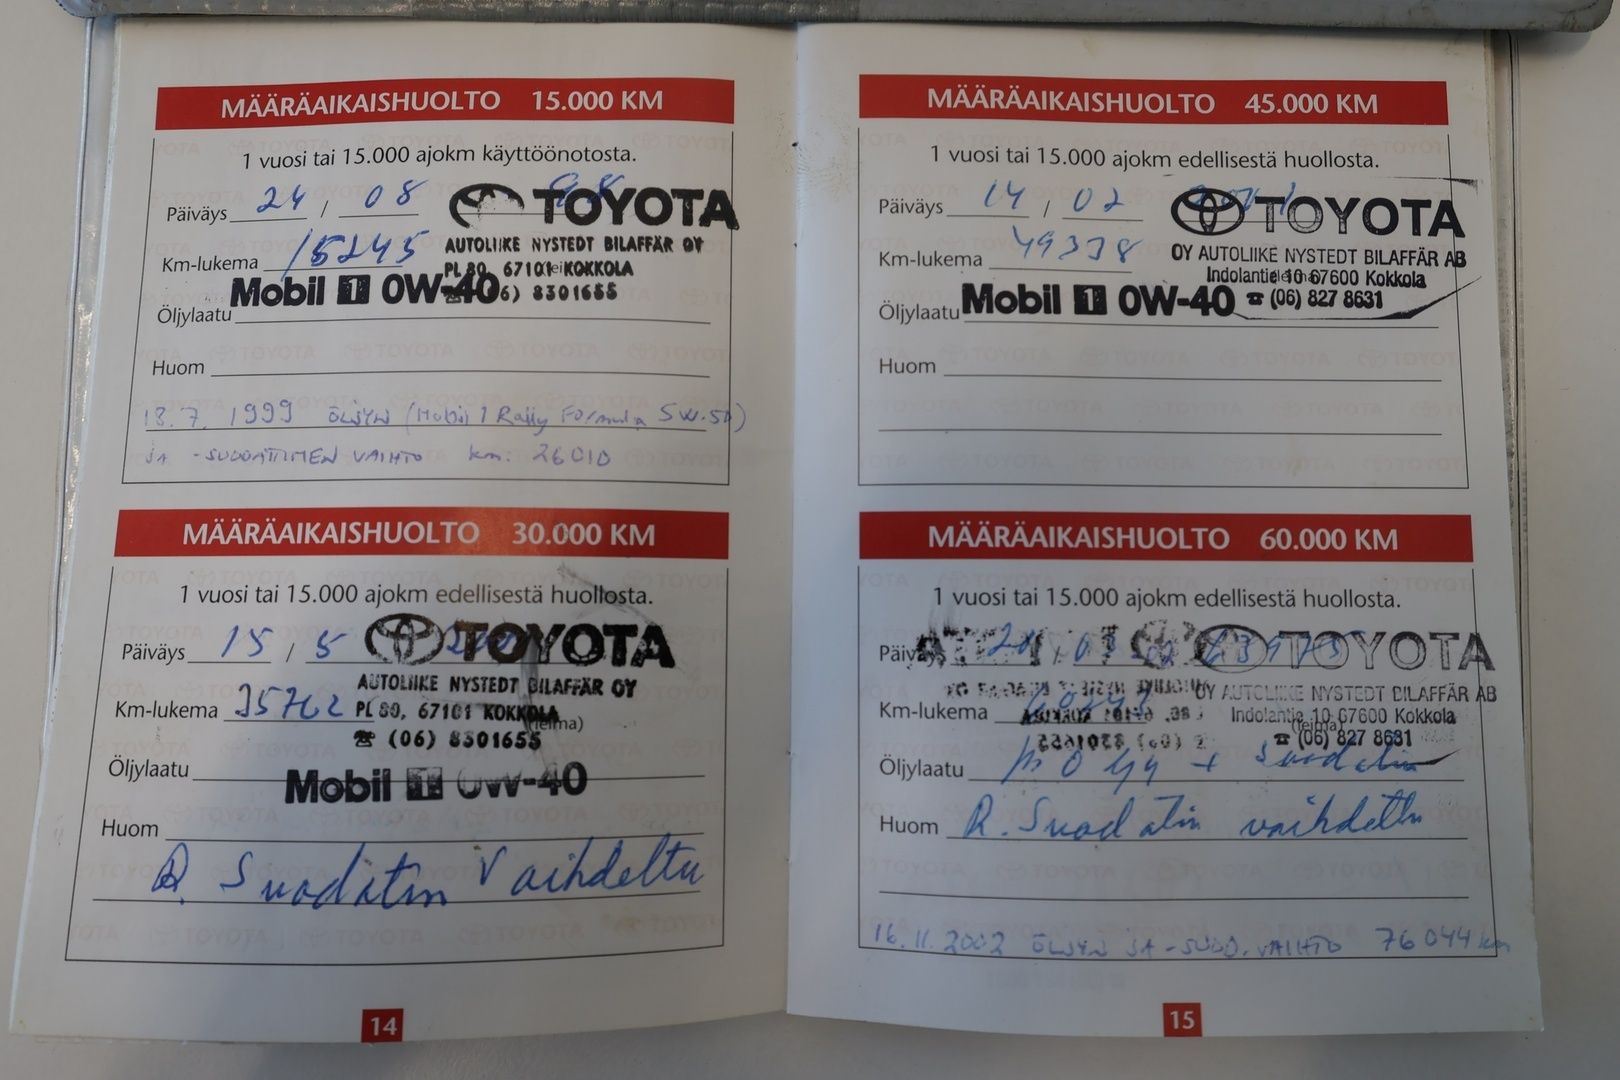 MÄÄRÄAIKAISHUOLTO 15.000 KM
1 vuosi tai 15.000 ajokm käyttöönotosta.
Päiväys 24 / 08 98
TOYOTA
Km-lukema 15245
AUTOLIIKE NYSTEDT BILAFFÄR OY
PL 80, 67101 KOKKOLA
6) 8301655
Öljylaatu Mobil 1 0W-40
Huom
18.7. 1999 ÖLJYN (Mobil 1 Rally Formula 5W-50)
JA -SUODATTIMEN VAIHTO km: 26010
MÄÄRÄAIKAISHUOLTO 30.000 KM
1 vuosi tai 15.000 ajokm edellisestä huollosta.
Päiväys 15 / 5
TOYOTA
Km-lukema 35762
AUTOLIIKE NYSTEDT BILAFFÄR OY
PL 80, 67101 KOKKOLA
(leima)
☎ (06) 8301655
Öljylaatu Mobil 1 0W-40
Huom
R. Suodatin Vaihdettu
14
MÄÄRÄAIKAISHUOLTO 45.000 KM
1 vuosi tai 15.000 ajokm edellisestä huollosta.
Päiväys 14 / 02
TOYOTA
Km-lukema 49338
OY AUTOLIIKE NYSTEDT BILAFFÄR AB
Indolantie 10 67600 Kokkola
☎ (06) 827 8631
Öljylaatu Mobil 1 0W-40
Huom
MÄÄRÄAIKAISHUOLTO 60.000 KM
1 vuosi tai 15.000 ajokm edellisestä huollosta.
Päiväys / 03
TOYOTA
Km-lukema
OY AUTOLIIKE NYSTEDT BILAFFÄR AB
Indolantie 10 67600 Kokkola
(leima)
☎ (06) 827 8631
Öljylaatu + Suodatin
Huom R. Suodatin vaihdettu
16.11.2002 ÖLJYN JA -SUOD.VAIHTO 76044 km
15